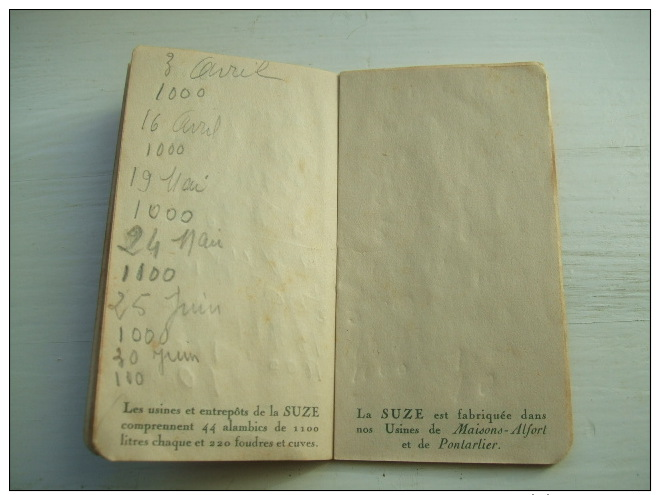 3 Avril
1000
16 Avril
1000
19 Mai
1000
24 Mai
1100
25 Juin
1000
30 Juin
100
Les usines et entrepôts de la SUZE
comprennent 44 alambics de 1100
litres chaque et 220 foudres et cuves.
La SUZE est fabriquée dans
nos Usines de Maisons-Alfort
et de Pontarlier.